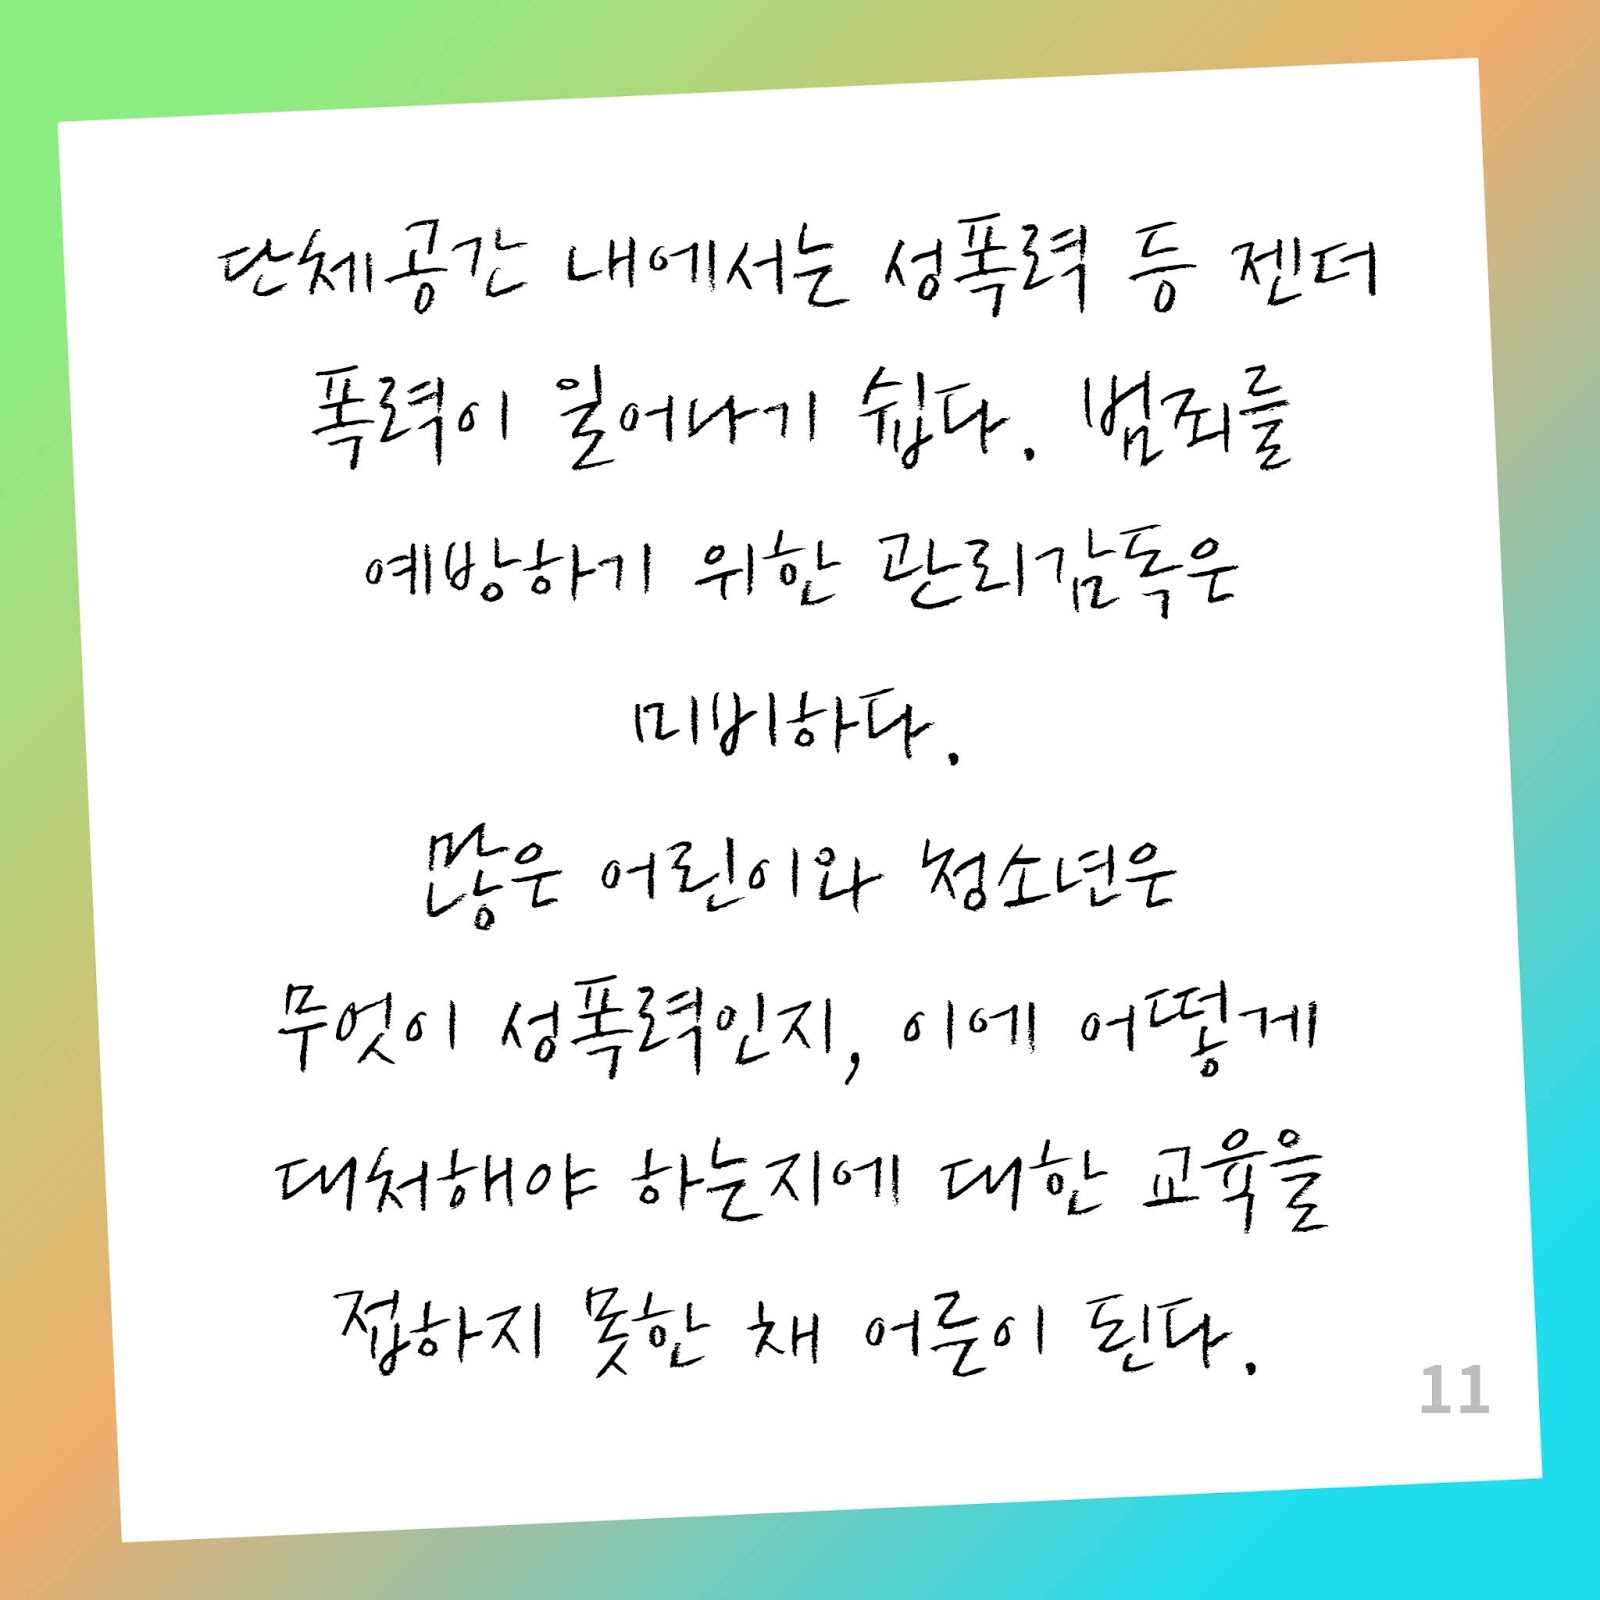 단체공간 내에서는 성폭력 등 젠더
폭력이 일어나기 쉽다. 범죄를
예방하기 위한 관리감독은
미비하다.
많은 어린이와 청소년은
무엇이 성폭력인지, 이에 어떻게
대처해야 하는지에 대한 교육을
접하지 못한 채 어른이 된다.
11